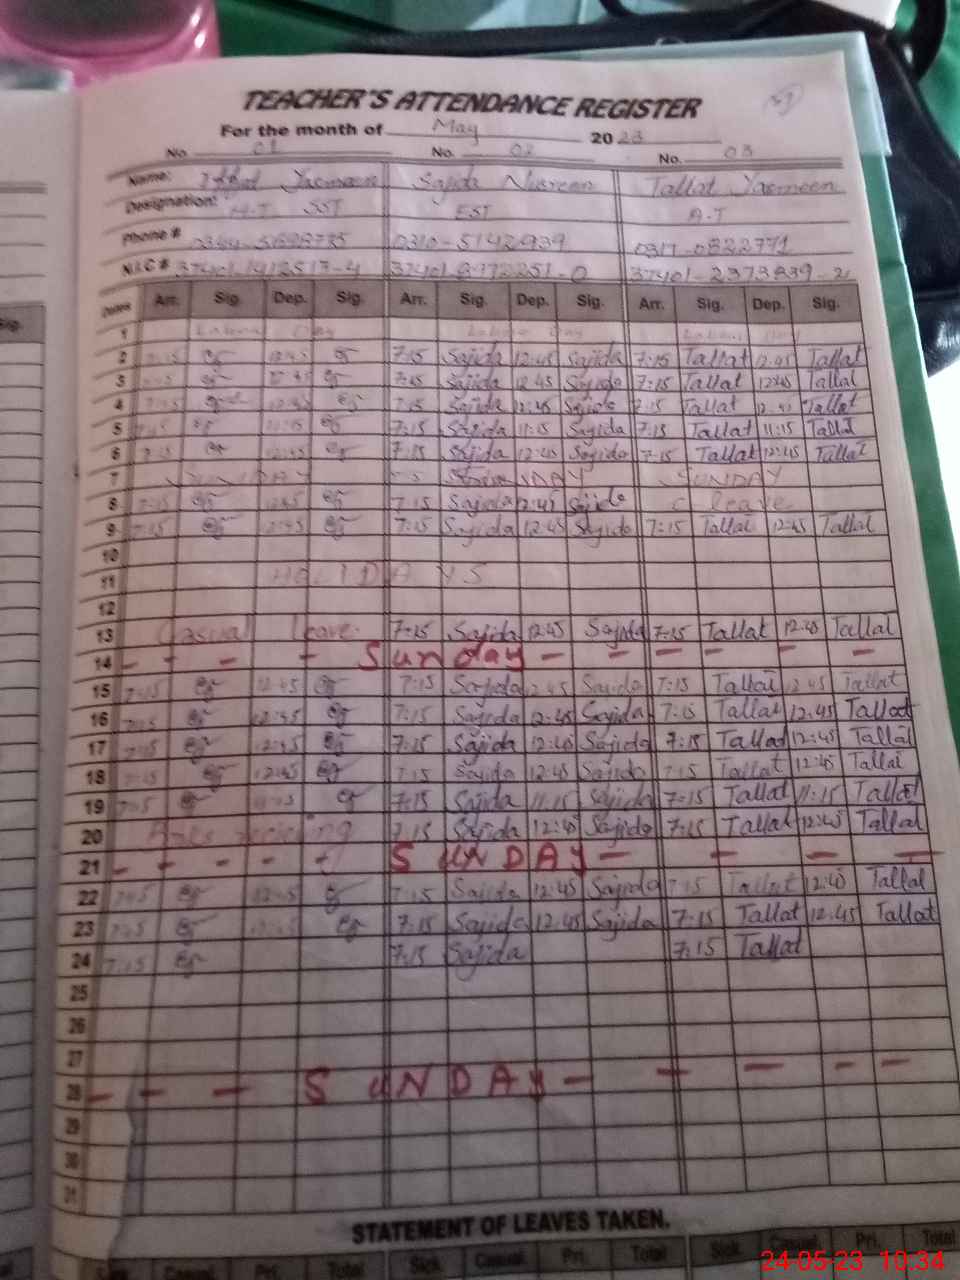 TEACHER'S ATTENDANCE REGISTER
For the month of May 2023
No. 01 No. 02 No. 03
Name: Yasmeen Sajida Nusreen Tallat Yasmeen
Designation: SST EST A.T
Phone # 0310-5142939 0317-0822771
N.I.C #
Dates Arr. Sig. Dep. Sig. Arr. Sig. Dep. Sig. Arr. Sig. Dep. Sig.
1 Labour Day Labour Day Labour Day
2 7:15 12:45 7:15 Sajida 12:45 Sajida 7:15 Tallat 12:45 Tallat
3 7:15 12:45 7:15 Sajida 12:45 Sajida 7:15 Tallat 12:45 Tallat
4 7:15 12:45 7:15 Sajida 12:45 Sajida 7:15 Tallat 12:45 Tallat
5 7:15 11:15 7:15 Sajida 11:15 Sajida 7:15 Tallat 11:15 Tallat
6 7:15 12:45 7:15 Sajida 12:45 Sajida 7:15 Tallat 12:45 Tallat
7 SUNDAY SUNDAY SUNDAY
8 7:15 12:45 7:15 Sajida 12:45 Sajida C leave
9 7:15 12:45 7:15 Sajida 12:45 Sajida 7:15 Tallat 12:45 Tallat
10
11 HOLIDAYS
12
13 Casual leave 7:15 Sajida 12:45 Sajida 7:15 Tallat 12:45 Tallat
14 - - - - Sunday - - - - - -
15 7:15 12:45 7:15 Sajida 12:45 Sajida 7:15 Tallat 12:45 Tallat
16 7:15 12:45 7:15 Sajida 12:45 Sajida 7:15 Tallat 12:45 Tallat
17 7:15 12:45 7:15 Sajida 12:45 Sajida 7:15 Tallat 12:45 Tallat
18 7:15 12:45 7:15 Sajida 12:45 Sajida 7:15 Tallat 12:45 Tallat
19 7:15 11:15 7:15 Sajida 11:15 Sajida 7:15 Tallat 11:15 Tallat
20 7:15 Sajida 12:45 Sajida 7:15 Tallat 12:45 Tallat
21 - - - - - SUNDAY - - - -
22 7:15 12:45 7:15 Sajida 12:45 Sajida 7:15 Tallat 12:45 Tallat
23 7:15 12:45 7:15 Sajida 12:45 Sajida 7:15 Tallat 12:45 Tallat
24 7:15 7:15 Sajida 7:15 Tallat
25
26
27
28 - - - SUNDAY - - - - -
29
30
31
STATEMENT OF LEAVES TAKEN.
Pri. Total Sick Casual Pri. Total Sick Casual Pri. Total
24-05-23 10:34